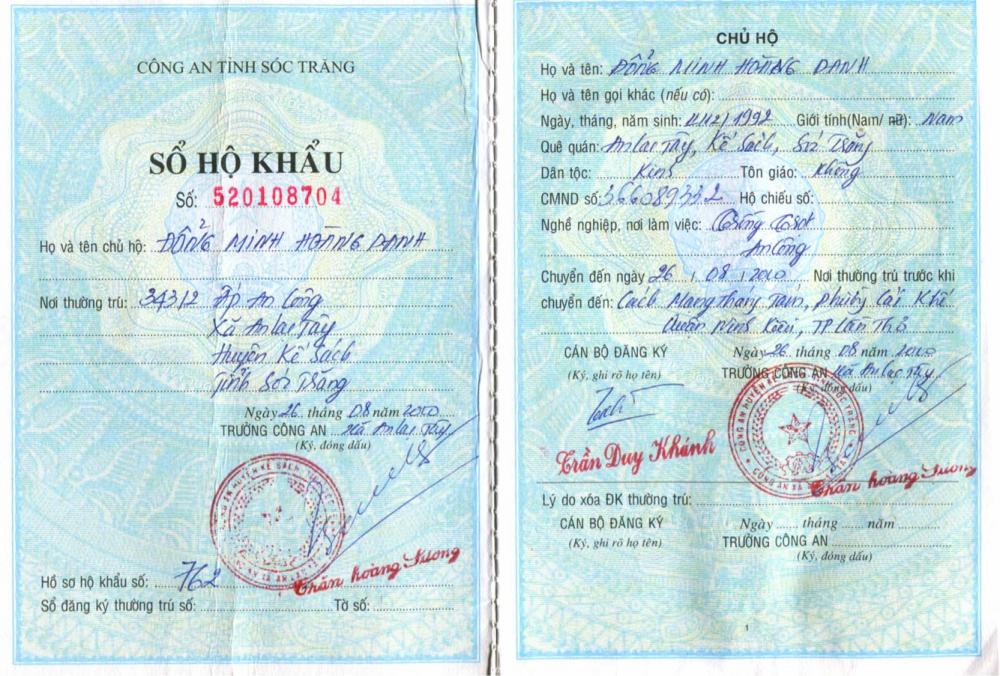 CÔNG AN TỈNH SÓC TRĂNG
SỔ HỘ KHẨU
Số: 520108704
Họ và tên chủ hộ: ĐỔNG MINH HOÀNG DANH
Nơi thường trú: 34312 Ấp An Công
Xã An Lạc Tây
Huyện Kế Sách
Tỉnh Sóc Trăng
Ngày 26 tháng 08 năm 2010
TRƯỞNG CÔNG AN Xã An Lạc Tây
(Ký, đóng dấu)
Trần Hoàng Sương
Hồ sơ hộ khẩu số: 762
Sổ đăng ký thường trú số: Tờ số:
CHỦ HỘ
Họ và tên: ĐỔNG MINH HOÀNG DANH
Họ và tên gọi khác (nếu có):
Ngày, tháng, năm sinh: /1992 Giới tính(Nam/ nữ): Nam
Quê quán: An Lạc Tây, Kế Sách, Sóc Trăng
Dân tộc: Kinh Tôn giáo: Không
CMND số: 366089332 Hộ chiếu số:
Nghề nghiệp, nơi làm việc:
An Công
Chuyển đến ngày 26 / 08 / 2010 Nơi thường trú trước khi
chuyển đến: Cách Mạng Tháng Tám, Phường Cái Khế
Quận Ninh Kiều, TP Cần Thơ
CÁN BỘ ĐĂNG KÝ Ngày 26 tháng 08 năm 2010
(Ký, ghi rõ họ tên) TRƯỞNG CÔNG AN Xã An Lạc Tây
(Ký, đóng dấu)
Trần Duy Khánh
Trần Hoàng Sương
Lý do xóa ĐK thường trú:
CÁN BỘ ĐĂNG KÝ Ngày ...... tháng ...... năm ......
(Ký, ghi rõ họ tên) TRƯỞNG CÔNG AN
(Ký, đóng dấu)
1